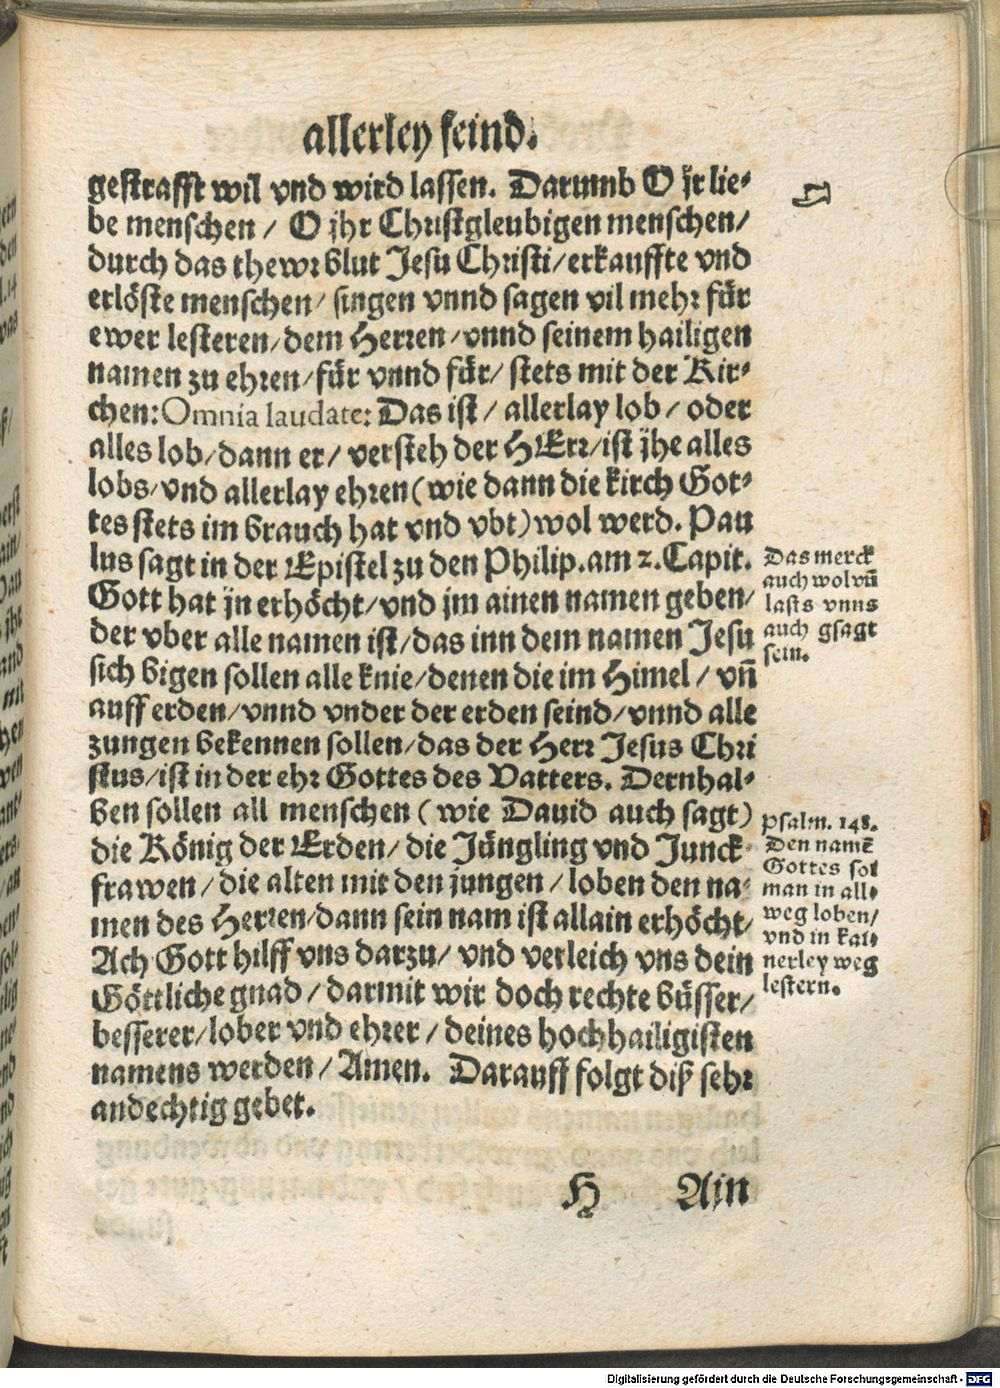 allerley feind.
gestrafft wil vnd wird lassen. Darumb O jr lie-
be menschen / O jhr Christgleubigen menschen/
durch das thewr blut Jesu Christi/erkauffte vnd
erlöste menschen/ singen vnnd sagen vil mehr für
ewer lesteren/dem Herren/vnnd seinem hailigen
namen zu ehren/für vnnd für/ stets mit der Kir-
chen:Omnia laudate: Das ist/ allerlay lob/ oder
alles lob/dann er/ versteh der HErr/ist jhe alles
lobs/vnd allerlay ehren(wie dann die kirch Got-
tes stets im brauch hat vnd vbt)wol werd. Pau
lus sagt in der Epistel zu den Philip.am 2.Capit.
Gott hat jn erhöcht/vnd jm ainen namen geben/
der vber alle namen ist/das inn dem namen Jesu
sich bigen sollen alle knie/denen die im Himel/ vn̄
auff erden/vnnd vnder der erden seind/vnnd alle
zungen bekennen sollen/das der Herr Jesus Chri
stus/ist in der ehr Gottes des Vatters. Dernhal-
ben sollen all menschen ( wie Dauid auch sagt)
die König der Erden/die Jüngling vnd Junck-
frawen/die alten mit den jungen/loben den na-
men des Herren/dann sein nam ist allain erhöcht/
Ach Gott hilff vns darzu/ vnd verleich vns dein
Göttliche gnad/darmit wir doch rechte büsser/
besserer/lober vnd ehrer/deines hochhailigisten
namens werden/Amen. Darauff folgt diß sehr
andechtig gebet.
Das merck
auch wol vn̄
lasts vnns
auch gsagt
sein.
Psalm. 148.
Den namē
Gottes sol
man in all-
weg loben/
vnd in kai-
nerley weg
lestern.
H Ain
Digitalisierung gefördert durch die Deutsche Forschungsgemeinschaft - DFG